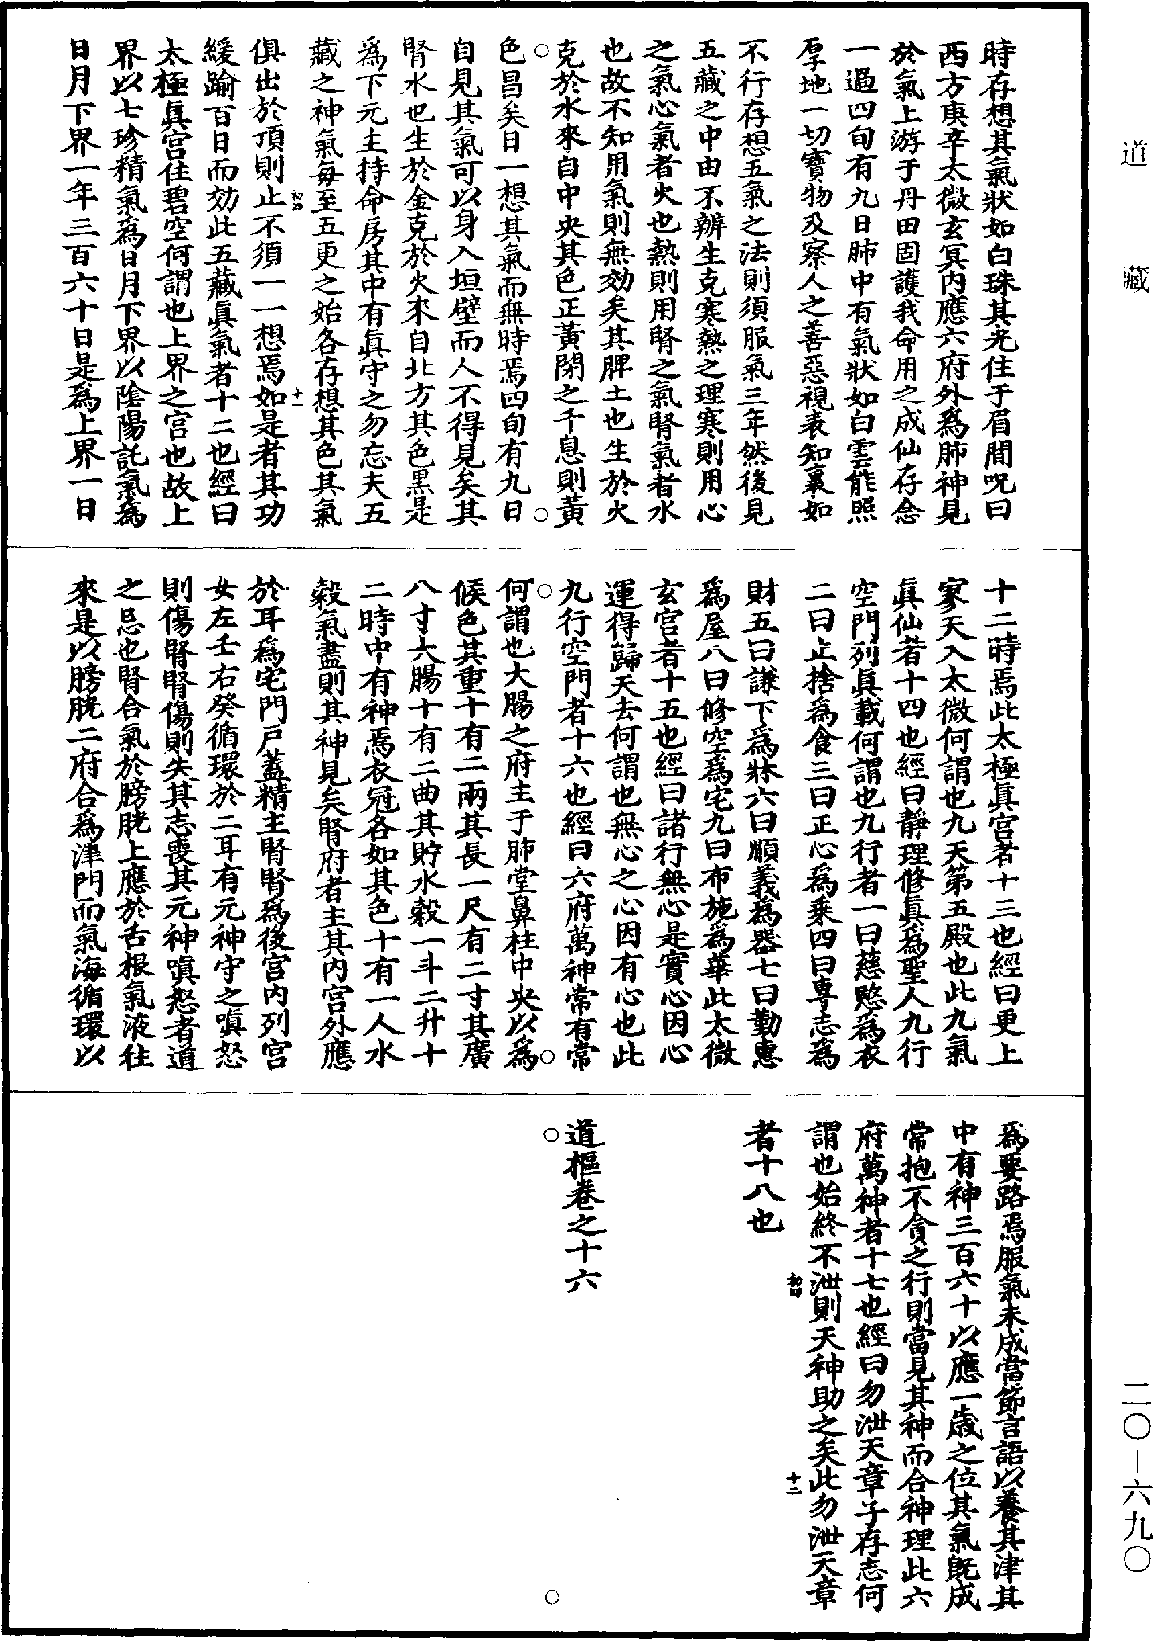 時存想其氣狀如白珠其光住于眉間呪曰
西方庚辛太微玄冥內應六府外爲肺神見
於氣上游于丹田固護我命用之成仙存念
一過四旬有九日肺中有氣狀如白雲能照
厚地一切寶物及察人之善惡視表知裏如
不行存想五氣之法則須服氣三年然後見
五藏之中由不辨生克寒熱之理寒則用心
之氣心氣者火也熱則用腎之氣腎氣者水
也故不知用氣則無効矣其脾土也生於火
克於水來自中央其色正黃閉之千息則黃
色昌矣日一想其氣而無時焉四旬有九日
自見其氣可以身入垣壁而人不得見矣其
腎水也生於金克於火來自北方其色黑是
爲下元主持命房其中有眞守之勿忘夫五
藏之神氣每至五更之始各存想其色其氣
俱出於頂則止不須一一想焉如是者其功
緩踰百日而効此五藏眞氣者十二也經曰
太極眞宮住碧空何謂也上界之宮也故上
界以七珍精氣爲日月下界以陰陽託氣爲
日月下界一年三百六十日是爲上界一日
初四
十一
十二時焉此太極眞宮者十三也經曰更上
寥天入太微何謂也九天第五殿也此九氣
眞仙者十四也經曰靜理修眞爲聖人九行
空門列眞載何謂也九行者一曰慈愍爲衣
二曰止捨爲食三曰正心爲乘四曰專志爲
財五曰謙下爲牀六曰順義爲器七曰勤惠
爲屋八曰修空爲宅九曰布施爲華此太微
玄宮者十五也經曰諸行無心是實心因心
運得歸天去何謂也無心之心因有心也此
九行空門者十六也經曰六府萬神常有常
何謂也大腸之府主于肺堂鼻柱中央以爲
候色其重十有二兩其長一尺有二寸其廣
八寸大腸十有二曲其貯水穀一斗二升十
二時中有神焉衣冠各如其色十有一人水
穀氣盡則其神見矣腎府者主其內宮外應
於耳爲宅門戶蓋精主腎腎爲後宮內列宮
女左壬右癸循環於二耳有元神守之嗔怒
則傷腎腎傷則失其志喪其元神嗔怒者道
之忌也腎合氣於膀胱上應於舌根氣液往
來是以膀胱二府合爲津門而氣海循環以
爲要路焉服氣未成當節言語以養其津其
中有神三百六十以應一歲之位其氣旣成
常抱不貪之行則當見其神而合神理此六
府萬神者十七也經曰勿泄天章子存志何
謂也始終不泄則天神助之矣此勿泄天章
初四
十二
者十八也
道樞卷之十六
道藏
二〇－六九〇